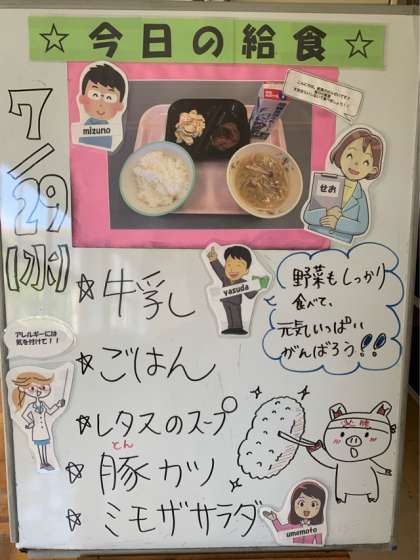 ☆今日の給食☆
7/29(水)
mizuno
せお
yasuda
☆牛乳
野菜もしっかり
食べて、
元気いっぱい
がんばろう!!
アレルギーには
気を付けて！！
☆ごはん
☆レタスのスープ
とん
☆豚カツ
必勝
☆ミモザサラダ
umemoto